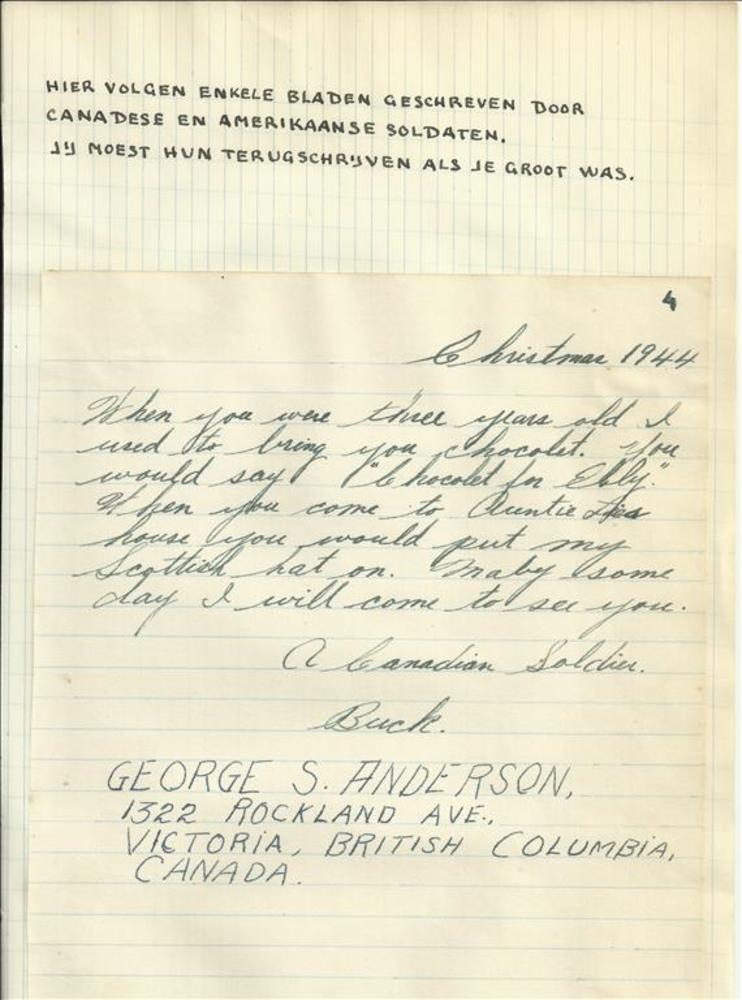 HIER VOLGEN ENKELE BLADEN GESCHREVEN DOOR
CANADESE EN AMERIKAANSE SOLDATEN.
JIJ MOEST HUN TERUGSCHRIJVEN ALS JE GROOT WAS.
4
Christmas 1944
When you were three years old I
used to bring you chocolet. You
would say "Chocolet for Elly."
When you come to Auntie
house you would put my
Scottish hat on. Maby some
day I will come to see you.
A Canadian Soldier.
Buck.
GEORGE S. ANDERSON,
1322 ROCKLAND AVE.,
VICTORIA, BRITISH COLUMBIA,
CANADA.